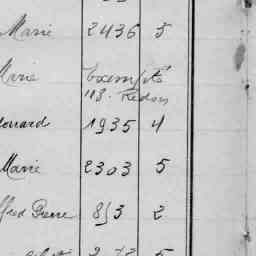 Marie 2436 5
Marie Exempté
113. Redon
1935 4
Marie 2303 5
Pierre 853 2
5